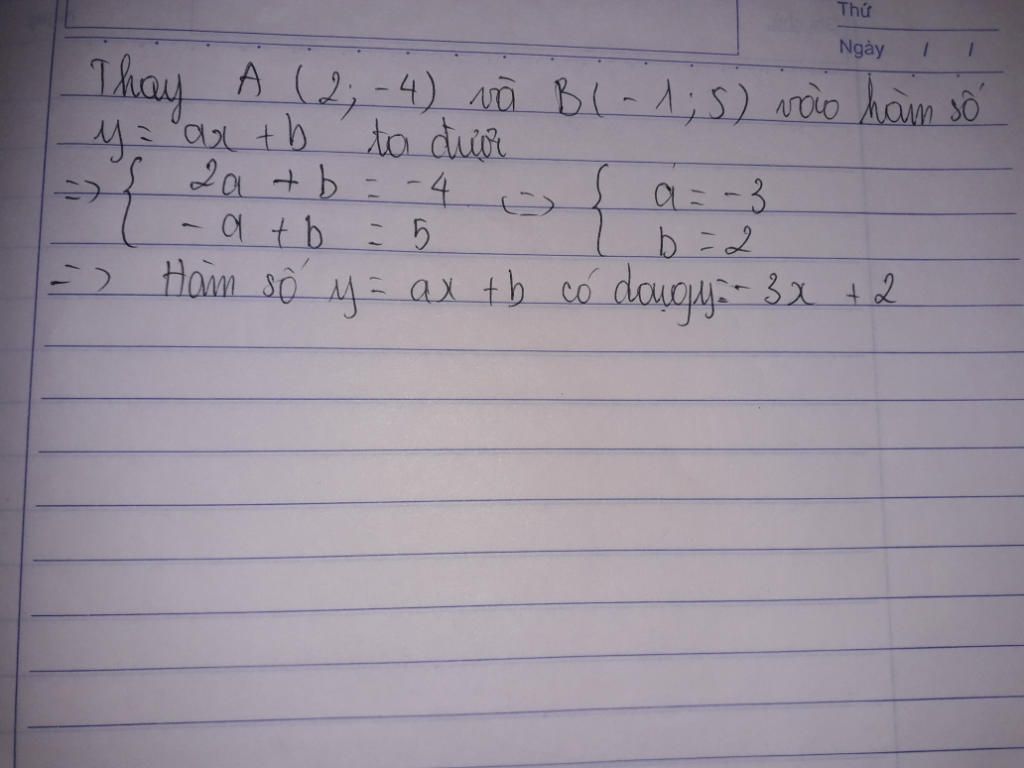 Thứ
Ngày / /
Thay A (2; -4) và B(-1; 5) vào hàm số
y = ax + b ta được
=> { 2a + b = -4 <=> { a = -3
- a + b = 5 b = 2
=> Hàm số y = ax + b có dạng y = -3x + 2